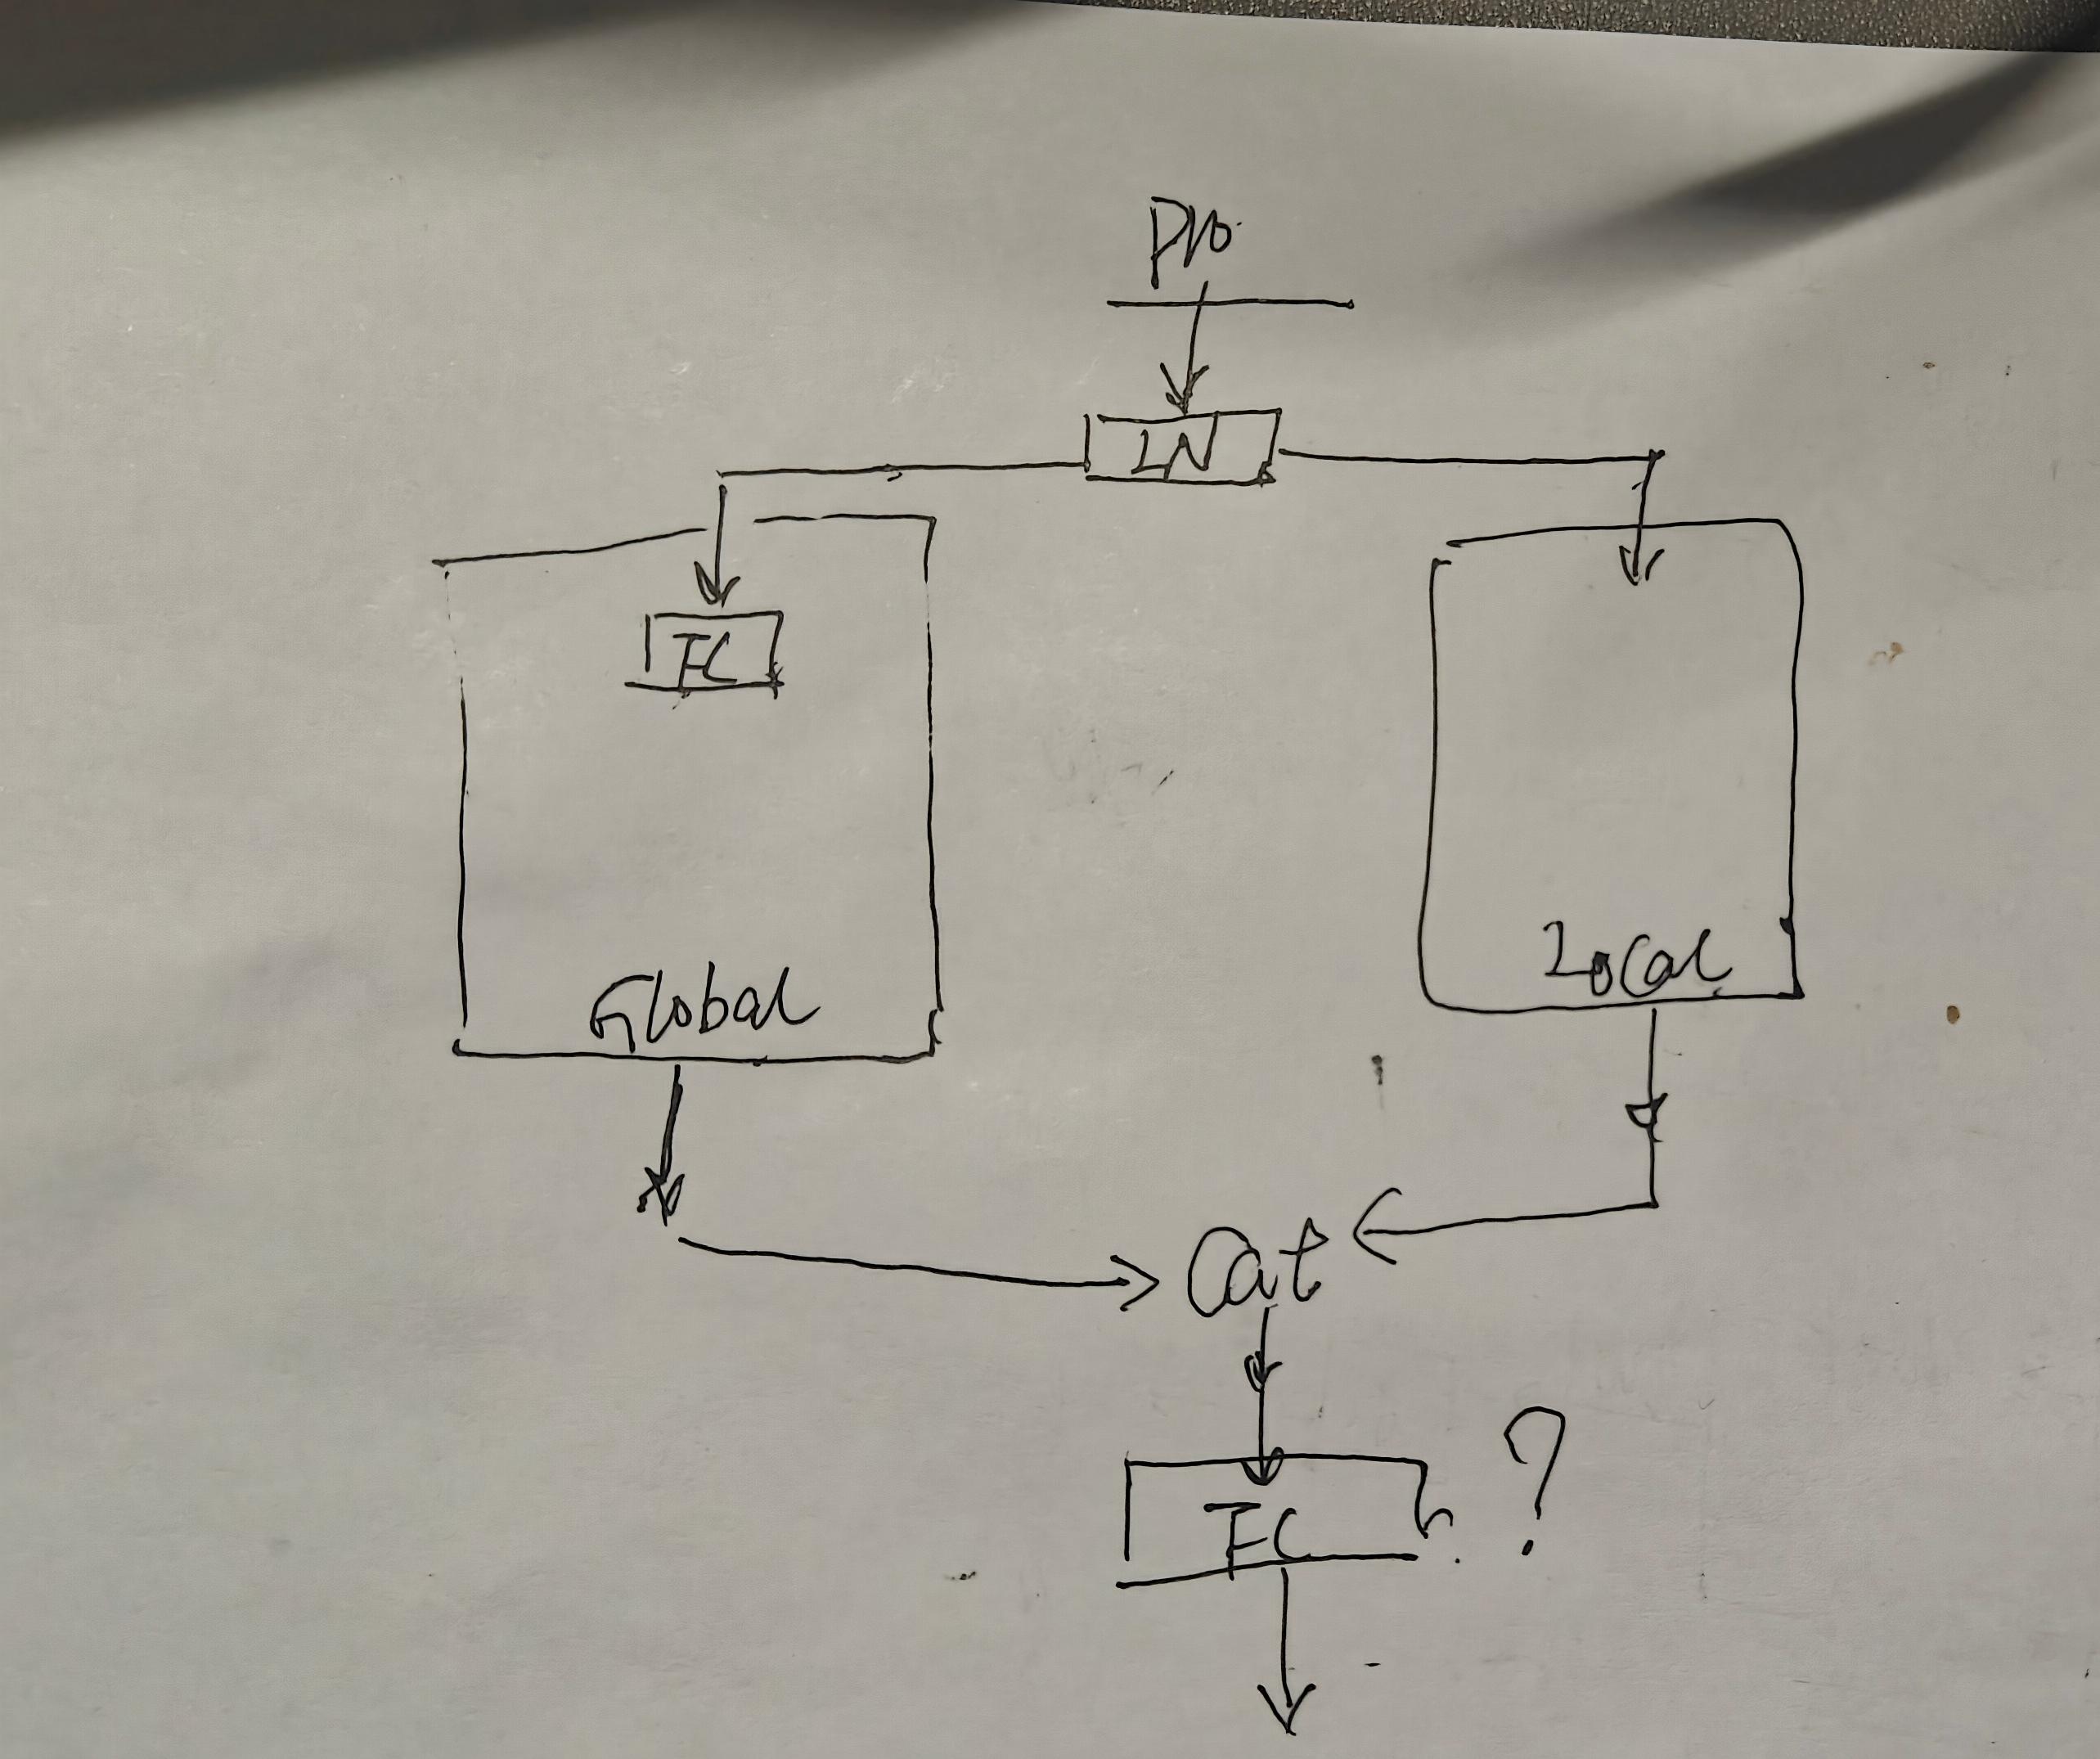 pro
LN
FC
Global
Local
Cat
FC ?